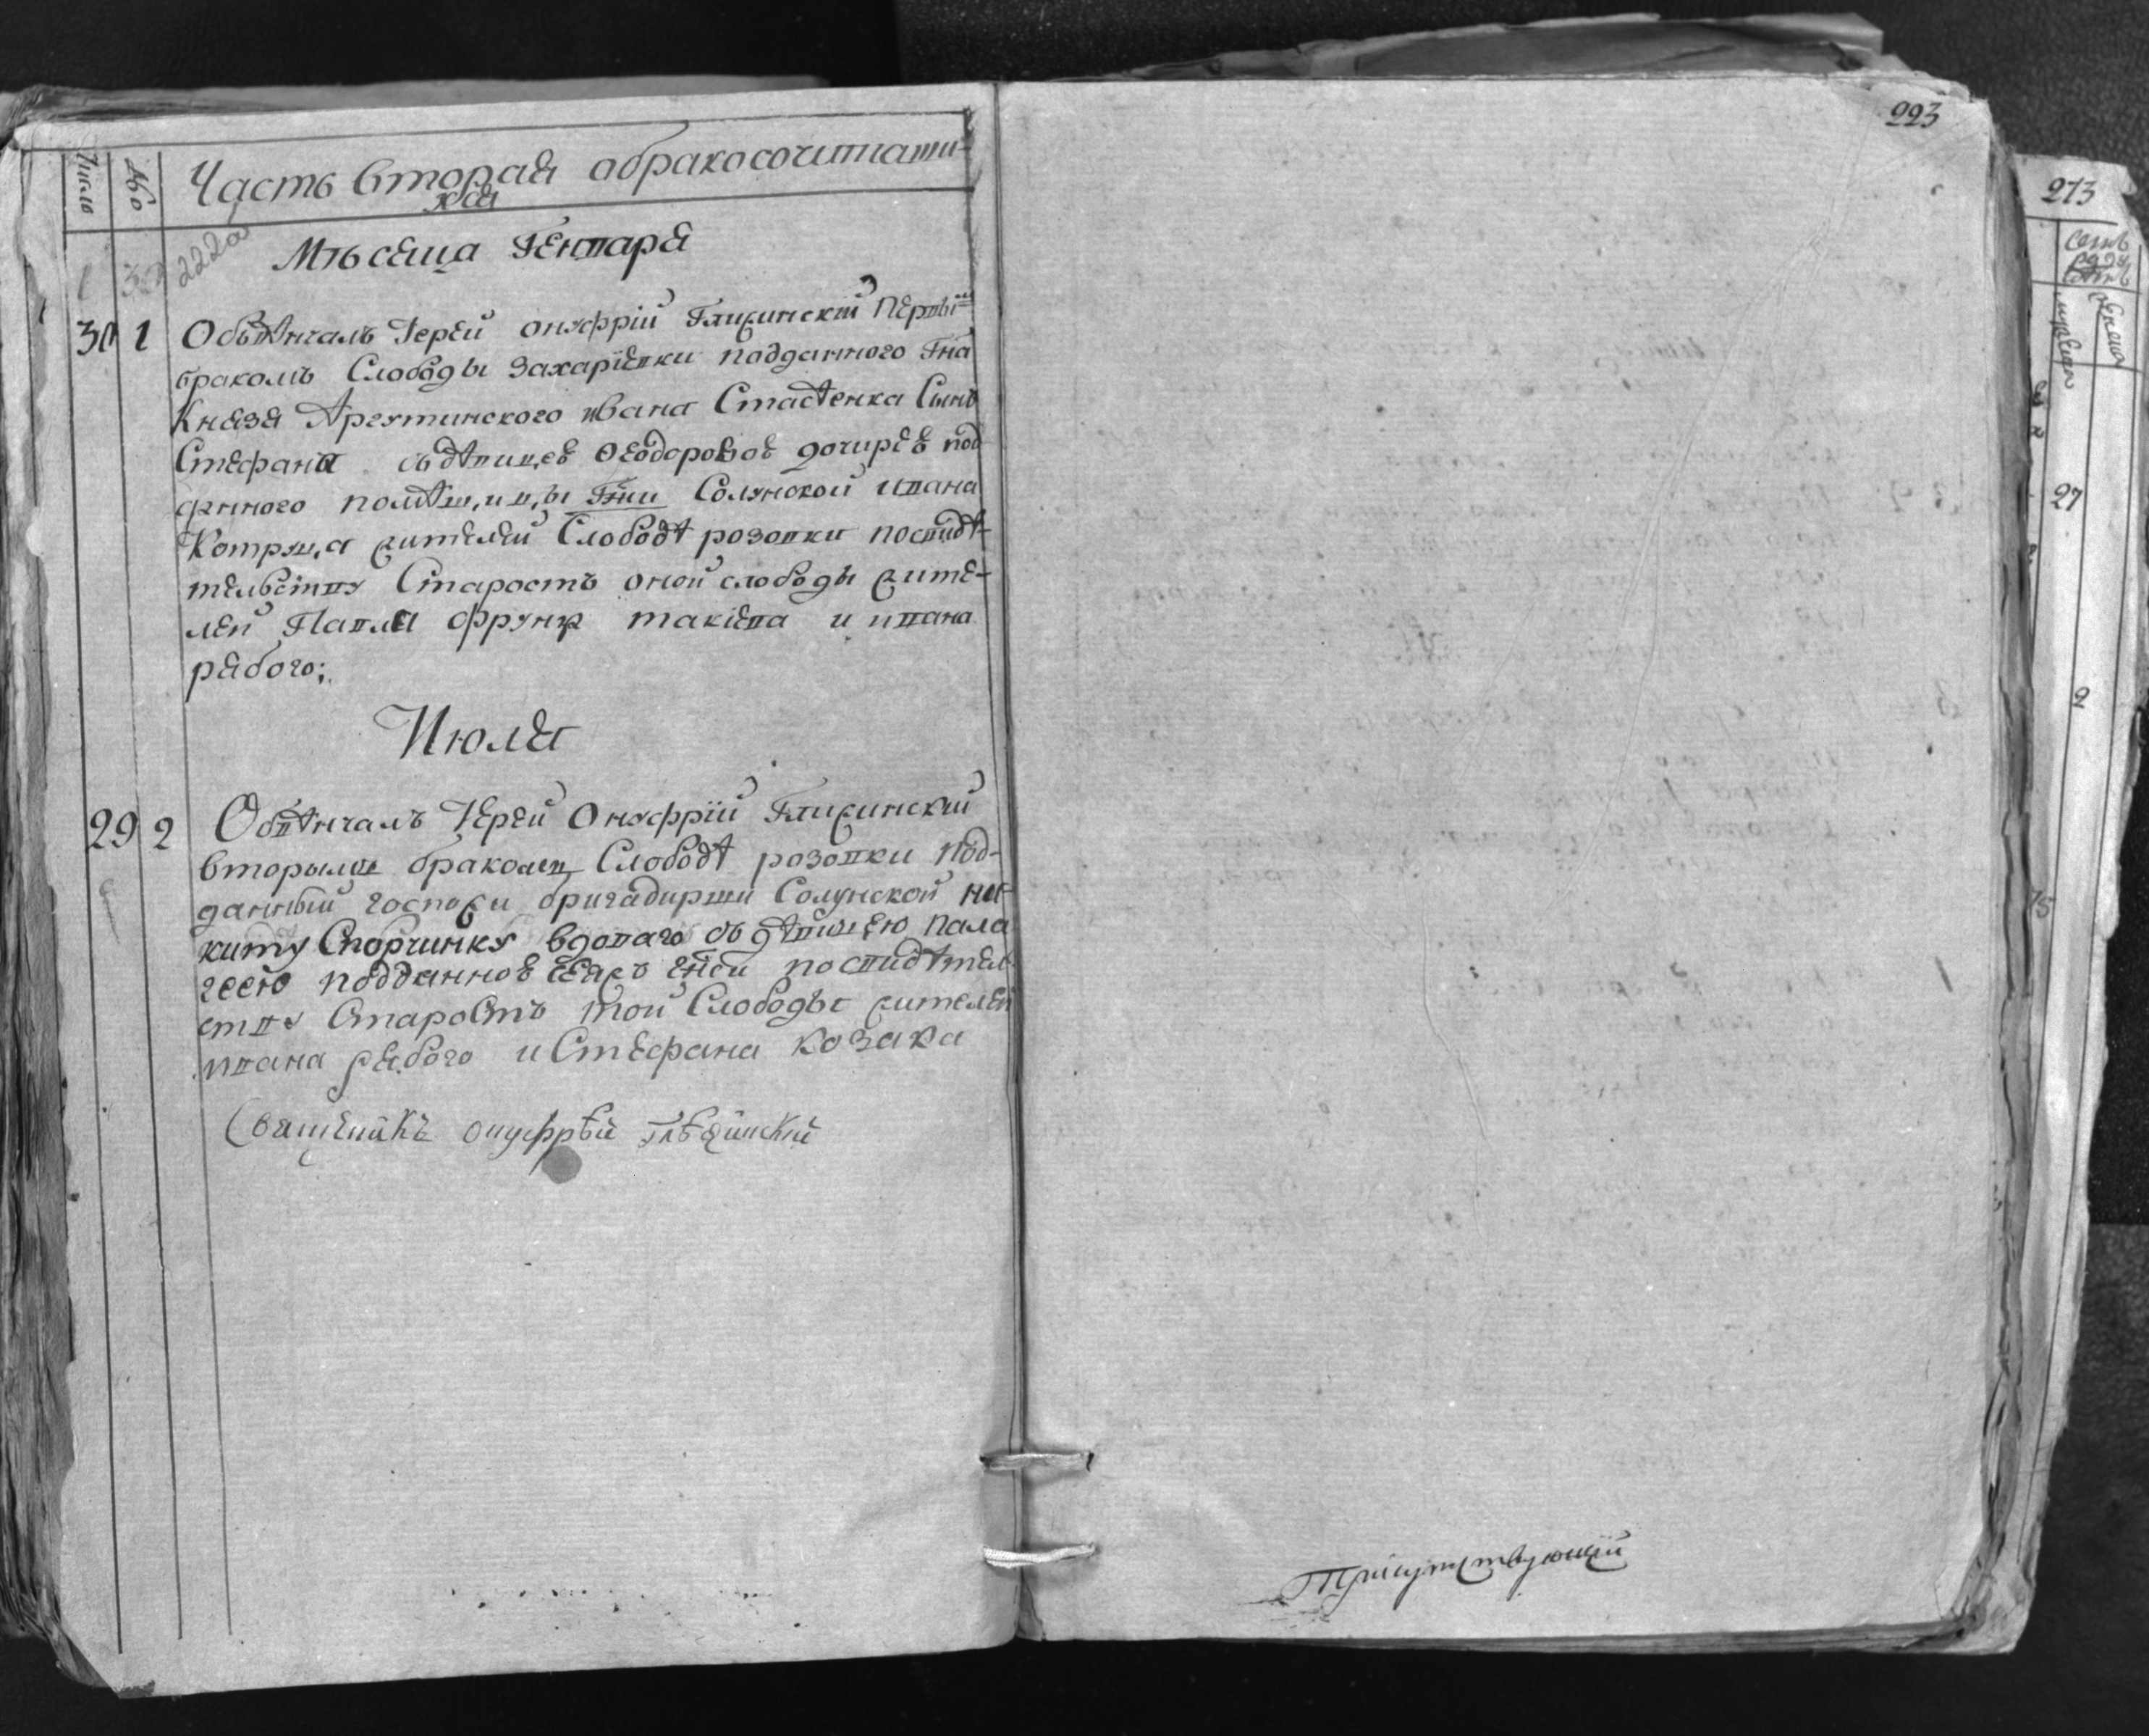 Число
№
Часть вторая обракосочитати-
хся
222об
Мѣсеца Генваря
30 1 Обвѣнчалъ Іерей онуфрій Глижинскій первы͏мъ
бракомъ Слободы Захаріевки подданного Гна
Князя Аргутинского ивана Стасѣенка Сынъ
Стефана съ дѣвицев Ѳеодоровов дочирѣв под
данного помѣщицы Гжи Солунской ивана
Котруца жителей Слободѣ розовки посвидѣ-
тельству Старостъ оной слободы жите-
лей Павла Фрунз такіева и ивана
рябого;
Июля
29 2 Обвѣнчалъ Іерей Онуфрій Глижинскій
вторымъ бракомъ Слободѣ розовки под-
данный госпожи бригадирши Солунской ни-
киту Споричнку вдоваго съ дѣвицею пала
геею подданнов сеяжъ Гжи посвидѣтел
ству Старостъ той Слободы жителей
ивана рябого и Стефана козака
Священикъ онуфрѣй Глѣжинскій
223
Присутствующій
273
27
2
15